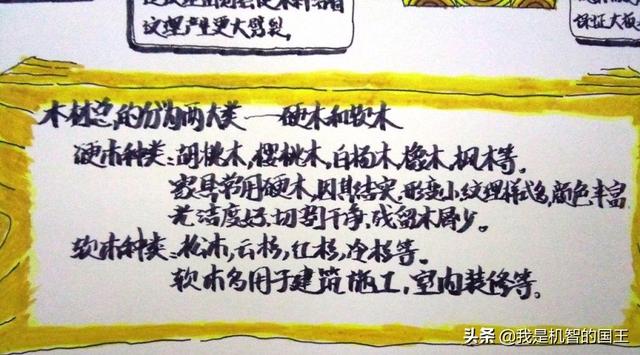 纹理产生更大劈裂。
保证大板
木材总的分为两大类——硬木和软木
硬木种类：胡桃木，樱桃木，白杨木，橡木，枫木等。
家具常用硬木，因其结实，形变小纹理样式多，颜色丰富
光洁度好，切割干净，残留木屑少。
软木种类：松木，云杉，红杉，冷杉等。
软木多用于建筑施工，室内装修等。
头条 @我是机智的国王